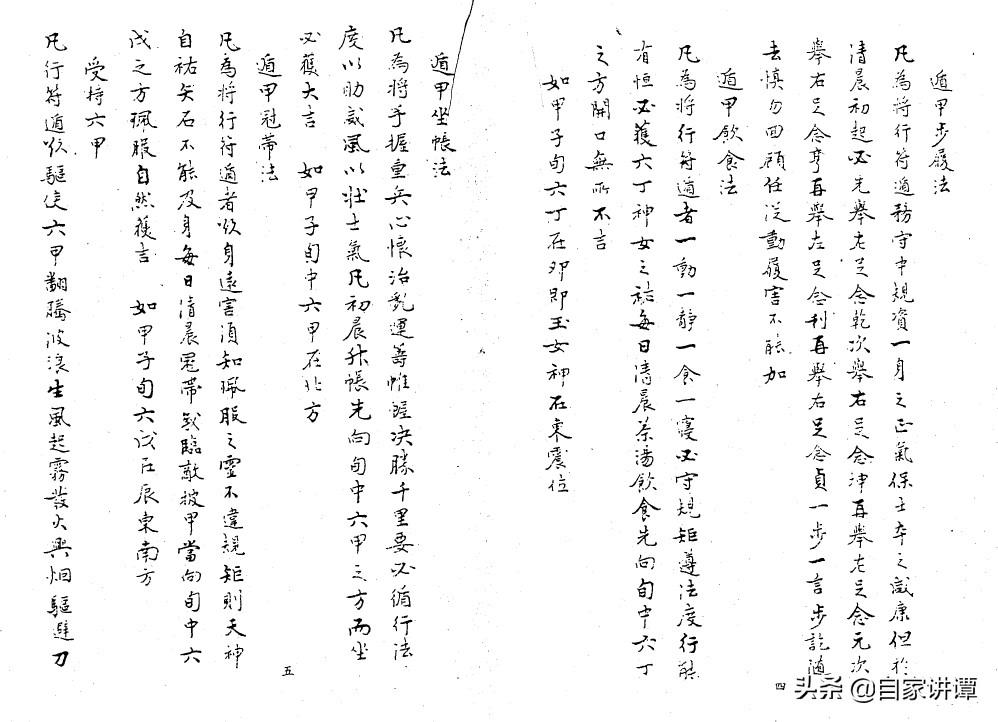 遁甲步履法
凡為将行符遁務守中規資一身之正氣保士卒之咸康但於
清晨初起必先舉左足念乾次舉右足念坤再舉左足念元次
舉右足念亨再舉左足念利再舉右足念貞一步一言步訖随
去慎勿回顧任從動履害不能加
遁甲飲食法
凡為将行符遁者一動一靜一食一寝必守規矩遵法度行能
有恒必獲六丁神女之祐每日清晨茶湯飲食先向旬中六丁
之方開口無所不言
如甲子旬六丁在卯即玉女神在東震位
四
遁甲坐帳法
凡為将手握重兵心懷治亂運籌帷幄决勝千里要必循行法
度以助威風以壮士氣凡初晨升帳先向旬中六甲之方而坐
必獲大吉 如甲子旬中六甲在北方
遁甲冠帯法
凡為将行符遁者欲身遠害須知珮服之靈不違規矩則天神
自祐矢石不能及身每日清晨冠帶或臨敵披甲當向旬中六
戊之方珮服自然獲吉 如甲子旬六戊在辰東南方
受持六甲
凡行符遁欲驅使六甲翻騰波浪生風起霧發火興烟驅避刀
五
头条 @自家讲谭